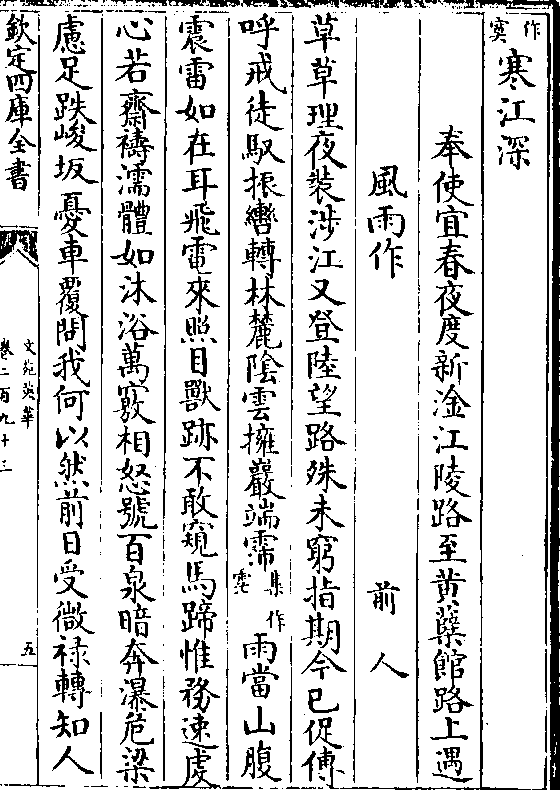 作
寞
寒江深
奉使宜春夜度新淦江陵路至黄蘗館路上遇
風雨作 前人
草草理夜裝涉江又登陸望路殊未窮指期今已促傳
呼戒徒馭振轡轉林麓陰雲擁巖端霈集作雲雨當山腹
震雷如在耳飛電來照目獸跡不敢窺馬蹄惟務速虔
心若齋禱濡體如沐浴萬竅相怒號百泉暗奔瀑危梁
慮足跌峻坂憂車覆問我何以然前日受微禄轉知人
欽定四庫全書
文苑英華
卷二百九十三
五